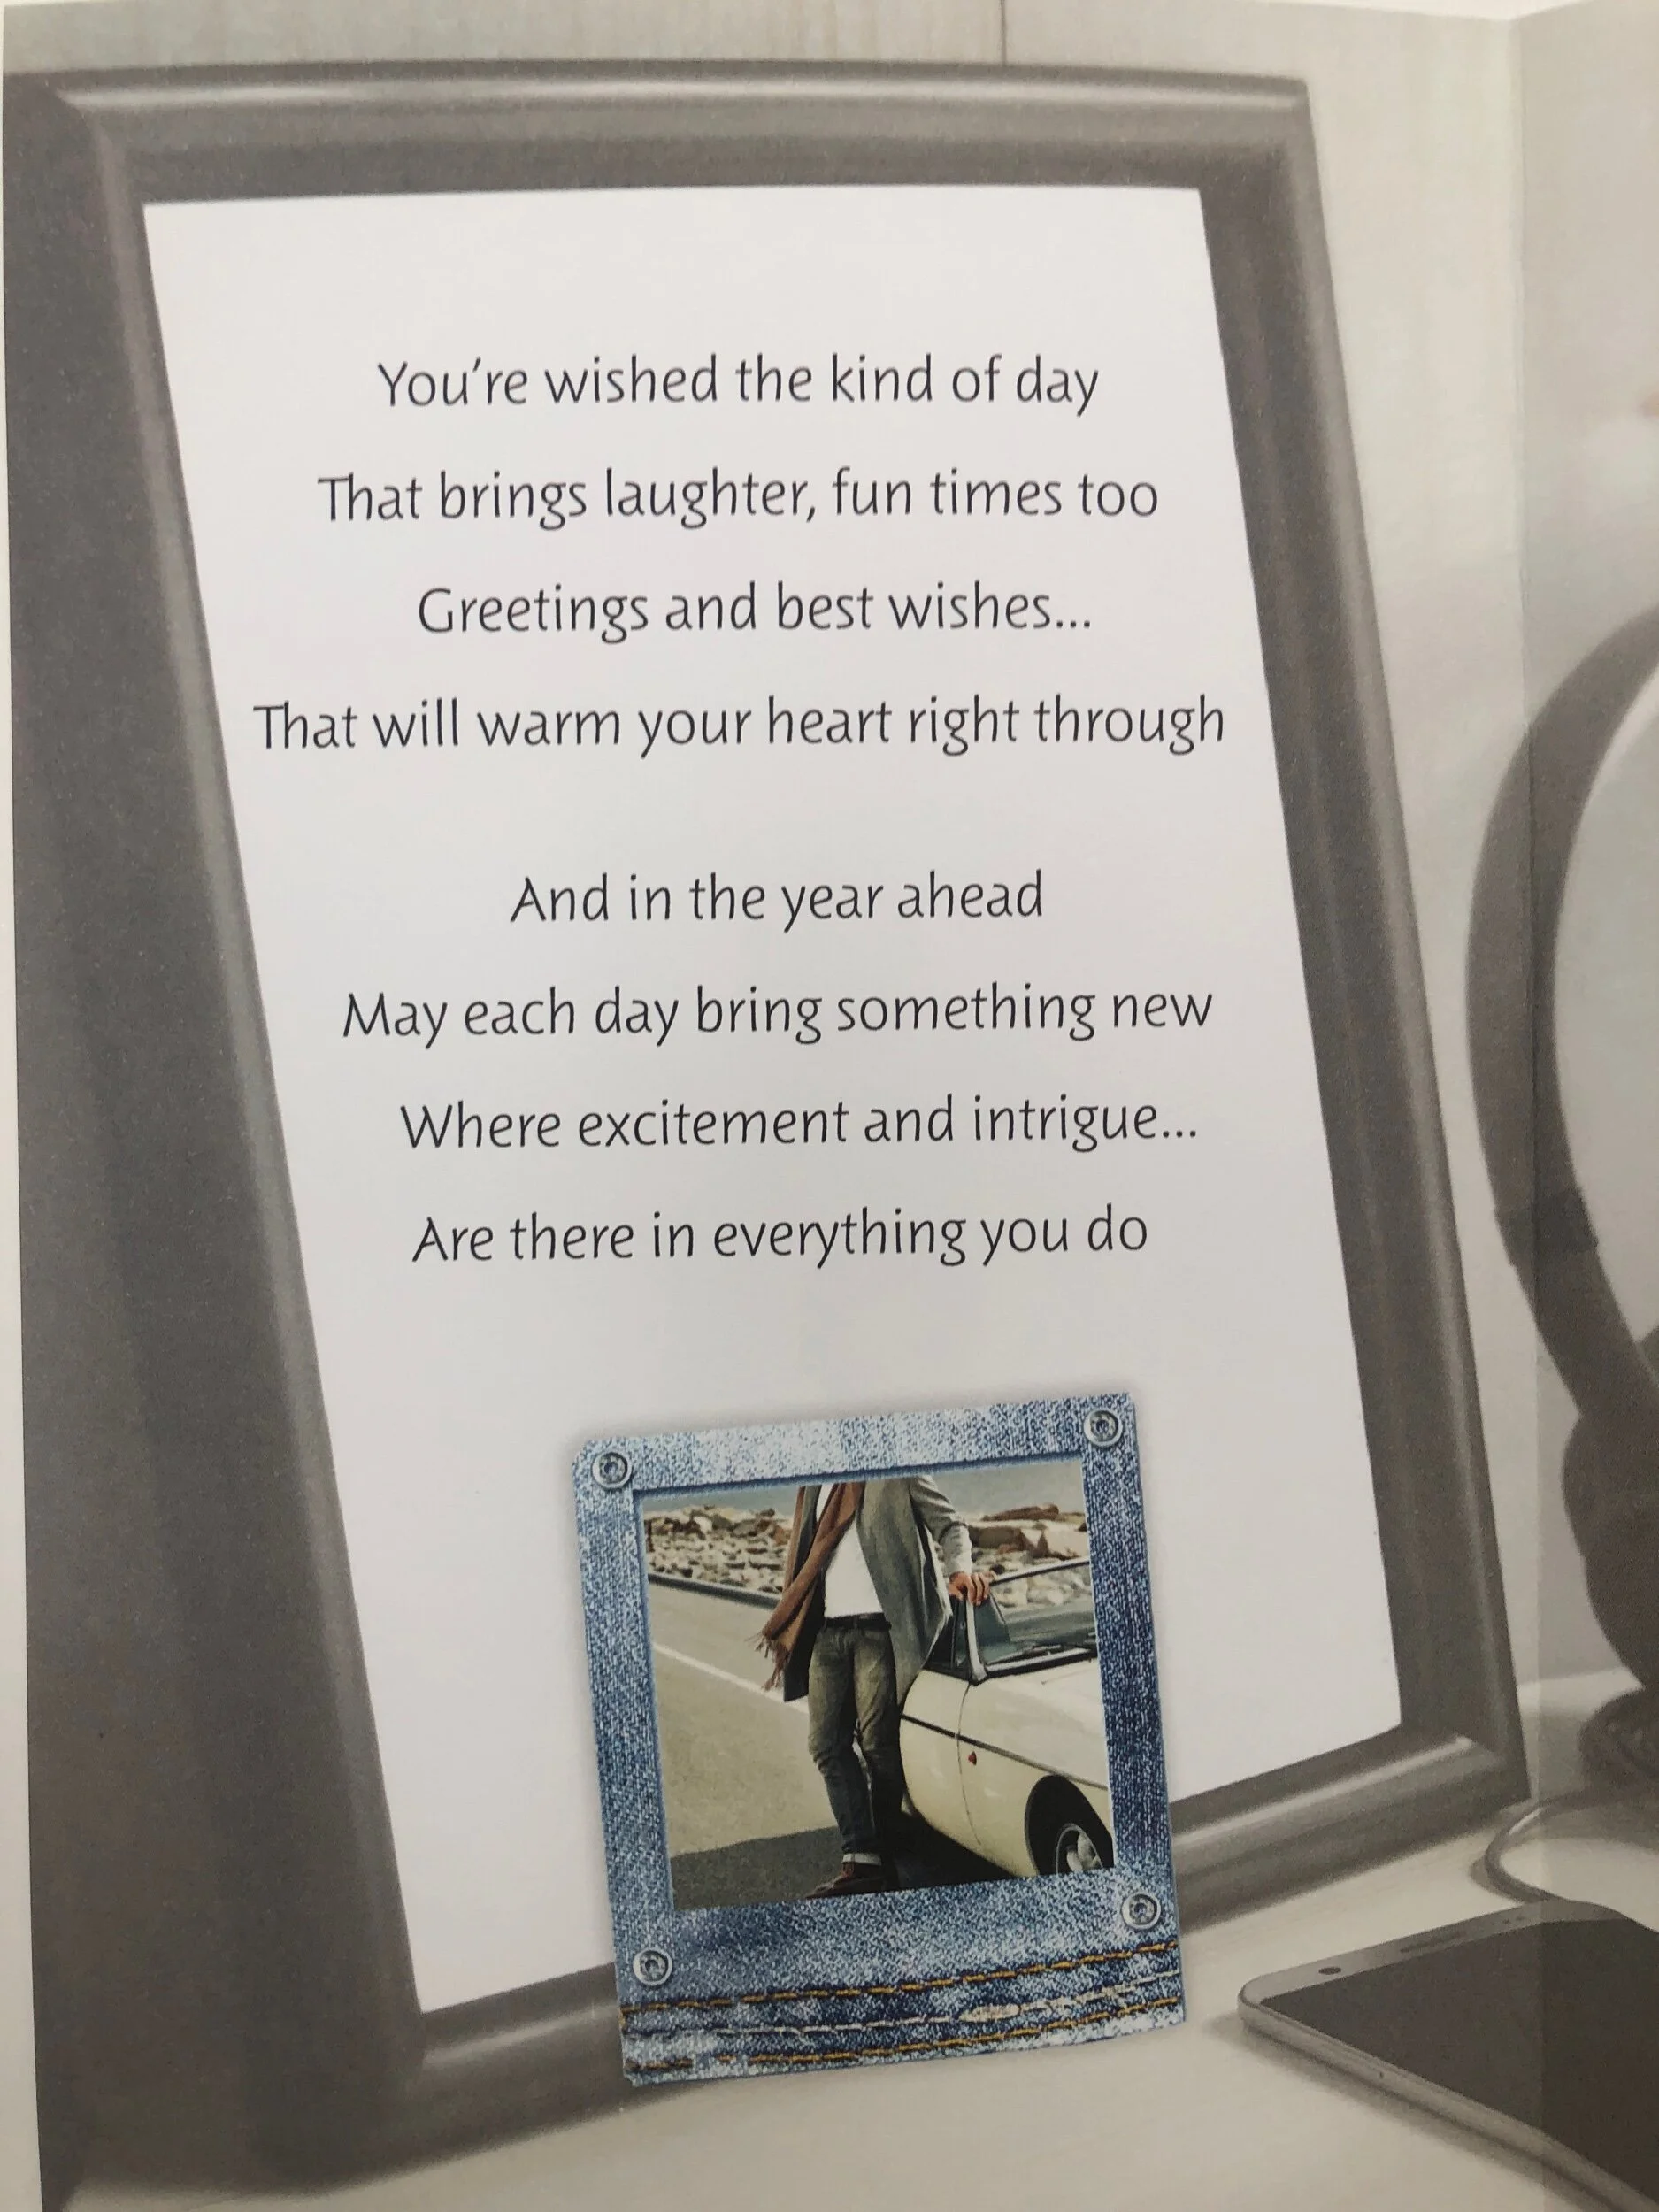 You're wished the kind of day
That brings laughter, fun times too
Greetings and best wishes...
That will warm your heart right through
And in the year ahead
May each day bring something new
Where excitement and intrigue...
Are there in everything you do